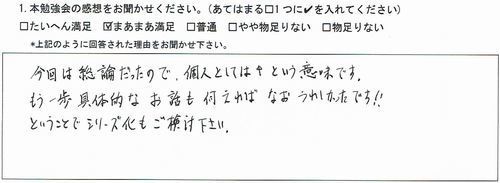 1. 本勉強会の感想をお聞かせください。（あてはまる□１つに✔を入れてください）
□たいへん満足 ☑まあまあ満足 □普通 □やや物足りない □物足りない
*上記のように回答された理由をお聞かせ下さい。
今回は総論だったので、個人としては↑という意味です。
もう一歩具体的なお話も伺えればなおうれしかったです!!
ということでシリーズ化もご検討下さい。